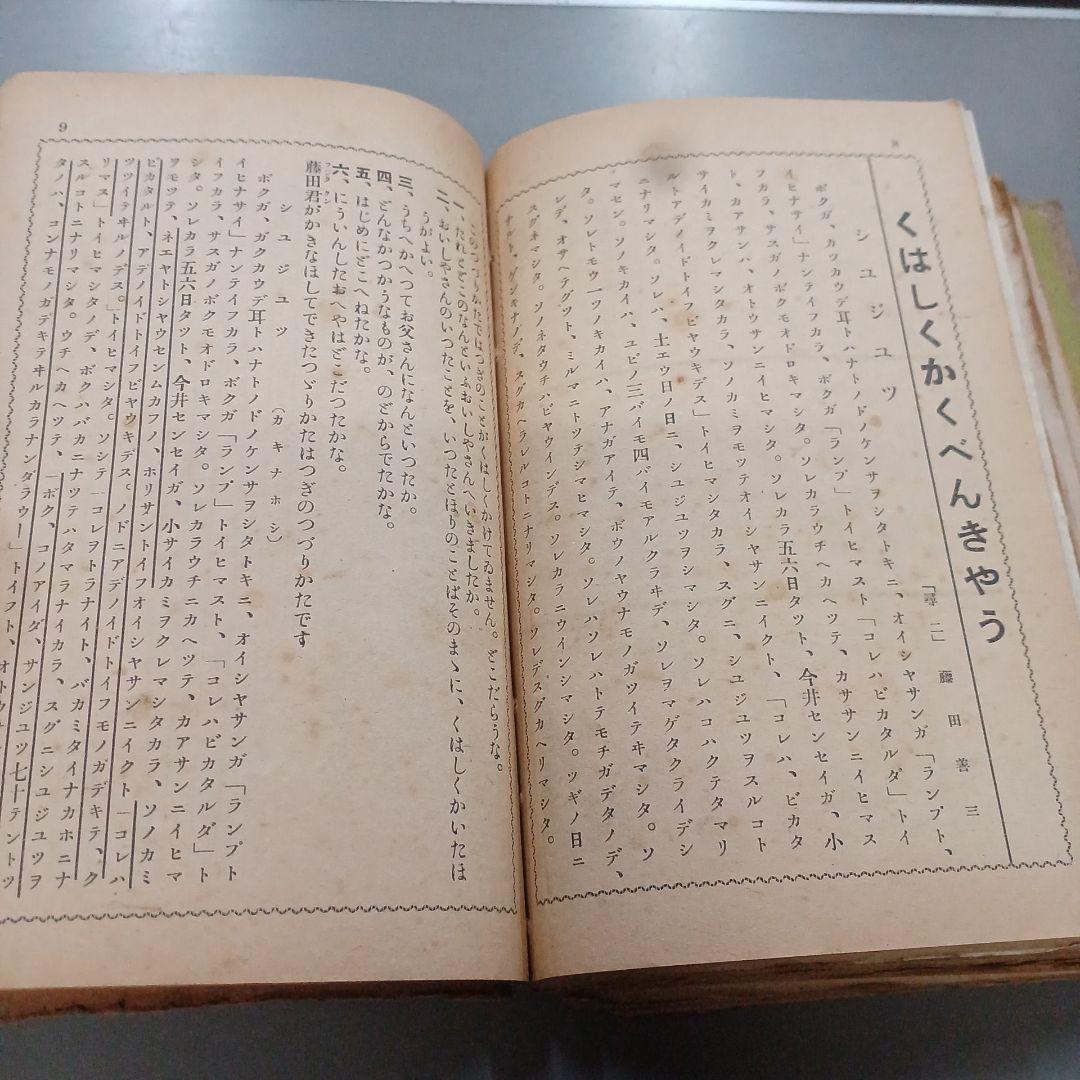 8
くはしくかくべんきやう
シユジユツ
「尋二」 藤田善三
ボクガ、カツカウデ耳トハナトノドノケンサヲシタトキニ、オイシヤサンガ「ランプト、
イヒナサイ」ナンテイフカラ、ボクガ「ランプ」トイヒマスト「コレハビカタルダ」トイ
フカラ、サスガノボクモオドロキマシタ。ソレカラウチヘカヘツテ、カササンニイヒマス
ト、カアサンハ、オトウサンニイヒマシタ。ソレカラ五六日タツト、今井センセイガ、小
サイカミヲクレマシタカラ、ソノカミヲモツテオイシヤサンニイクト、「コレハ、ビカタ
ルトアデノイドトイフビヤウキデス」トイヒマシタカラ、スグニ、シユジユツヲスルコト
ニナリマシタ。ソレハ、土エウ日ノ日ニ、シユジユツヲシマシタ。ソレハコハクテタマリ
マセン。ソノキカイハ、ユビノ三バイモ四バイモアルクラヰデ、ソレヲマゲタクライデシ
タ。ソレトモウ一ツノキカイハ、アナガアイテ、ボウノヤウナモノガツイテヰマシタ。ソ
レデ、オサヘテグツト、ミルマニトツテシマヒマシタ。ソレハソレハトテモチガデタノデ、
スグネマシタ。ソノネタウチハビヤウインデス。ソレカラニウインシマシタ。ツギノ日ニ
ナルト、ゲンキナノデ、スグカヘラレルコトニナリマシタ。ソレデスグカヘリマシタ。
9
このつづりかたではつぎのことがくはしくかけてゐません。どこだらうな。
一、たれとどこのなんといふおいしやさんへいきましたか。
二、おいしやさんのいつたことを、いつたとほりのことばそのまゝに、くはしくかいたほ
うがよい。
三、うちへかへつてお父さんになんといつたか。
四、どんなかつかうなものが、のどからでたかな。
五、はじめにどこへねたかな。
六、にういんしたおへやはどこだつたかな。
藤田君がかきなほしてできたつゞりかたはつぎのつづりかたです
シユジユツ (カキナホシ)
ボクガ、ガクカウデ耳トハナトノドノケンサヲシタトキニ、オイシヤサンガ「ランプト
イヒナサイ」ナンテイフカラ、ボクガ「ランプ」トイヒマスト、「コレハビカタルダ」ト
イフカラ、サスガノボクモオドロキマシタ。ソレカラウチニカヘツテ、カアサンニイヒマ
シタ。ソレカラ五六日タツト、今井センセイガ、小サイカミヲクレマシタカラ、ソノカミ
ヲモツテ、ネエヤトシヤウセンムカフノ、ホリサントイフオイシヤサンニイクト「コレハ
ビカタルト、アデノイドトイフビヤウキデス。ノドニアデノイドトイフモノガデキテ、ク
ツツイテヰルノデス。」トイヒマシタ。ソシテ「コレヲトラナイト、バカミタイナカホニナ
リマス」トイヒマシタノデ、ボクハバカニナツテハタマラナイカラ、スグニシユジユツヲ
スルコトニナリマシタ。ウチヘカヘツテ、「ボク、コノアイダ、サンジユツ七十テントツ
タノハ、コンナモノガデキテヰルカラナンダラウー」トイフト、オトウサン